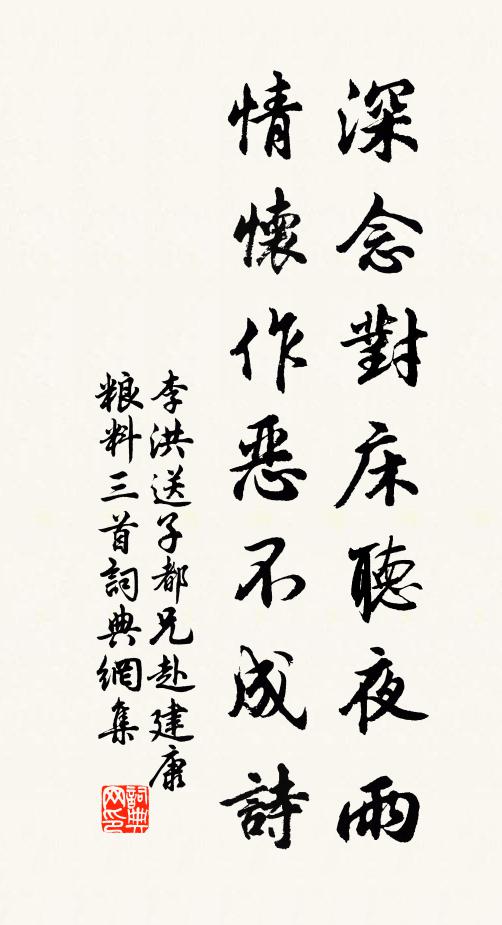 深念對床聽夜雨
情懷作惡不成詩
李洪送子都兄赴建康
粮料三首詞典網集
詞典
网印